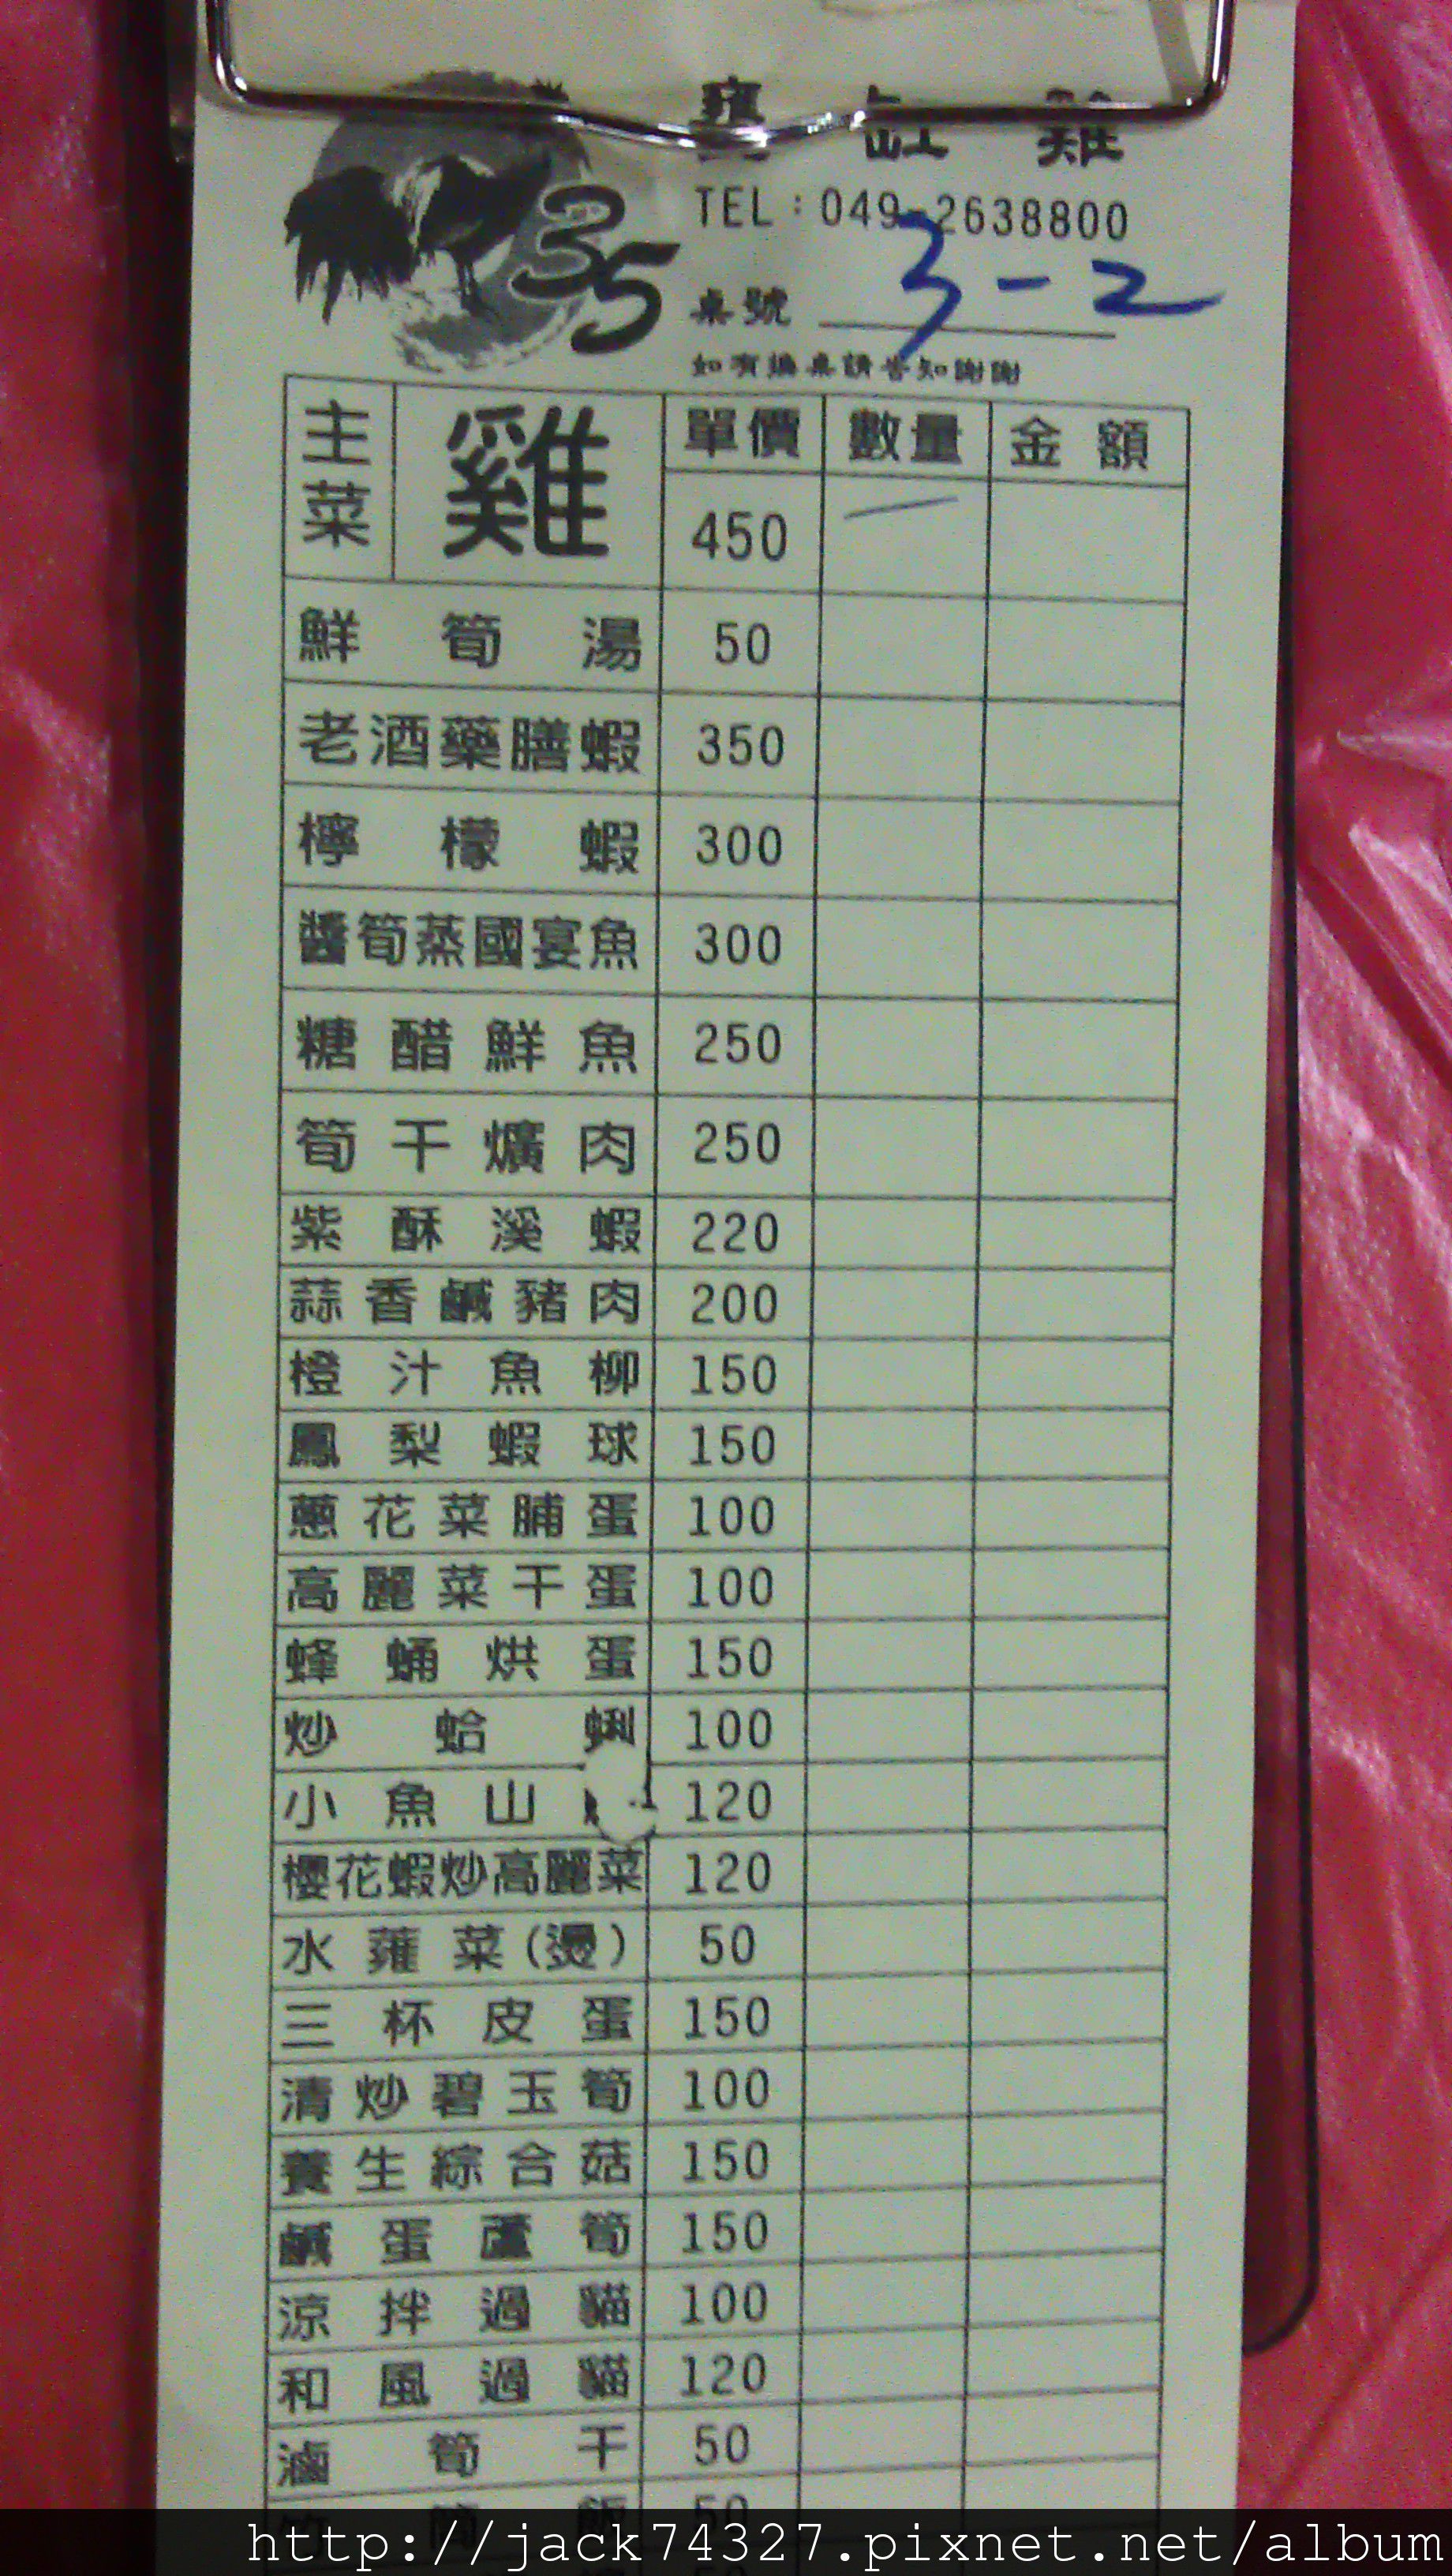 甕缸雞
35
TEL：049-2638800
桌號 3-2
如有換桌請告知謝謝
主菜 雞 單價 數量 金額
450 一
鮮筍湯 50
老酒藥膳蝦 350
檸檬蝦 300
醬筍蒸國宴魚 300
糖醋鮮魚 250
筍干爌肉 250
紫酥溪蝦 220
蒜香鹹豬肉 200
橙汁魚柳 150
鳳梨蝦球 150
蔥花菜脯蛋 100
高麗菜干蛋 100
蜂蛹烘蛋 150
炒蛤蜊 100
小魚山 120
櫻花蝦炒高麗菜 120
水蕹菜(燙) 50
三杯皮蛋 150
清炒碧玉筍 100
養生綜合菇 150
鹹蛋蘆筍 150
涼拌過貓 100
和風過貓 120
滷筍干 50
竹筒飯 50
50
http://jack74327.pixnet.net/album